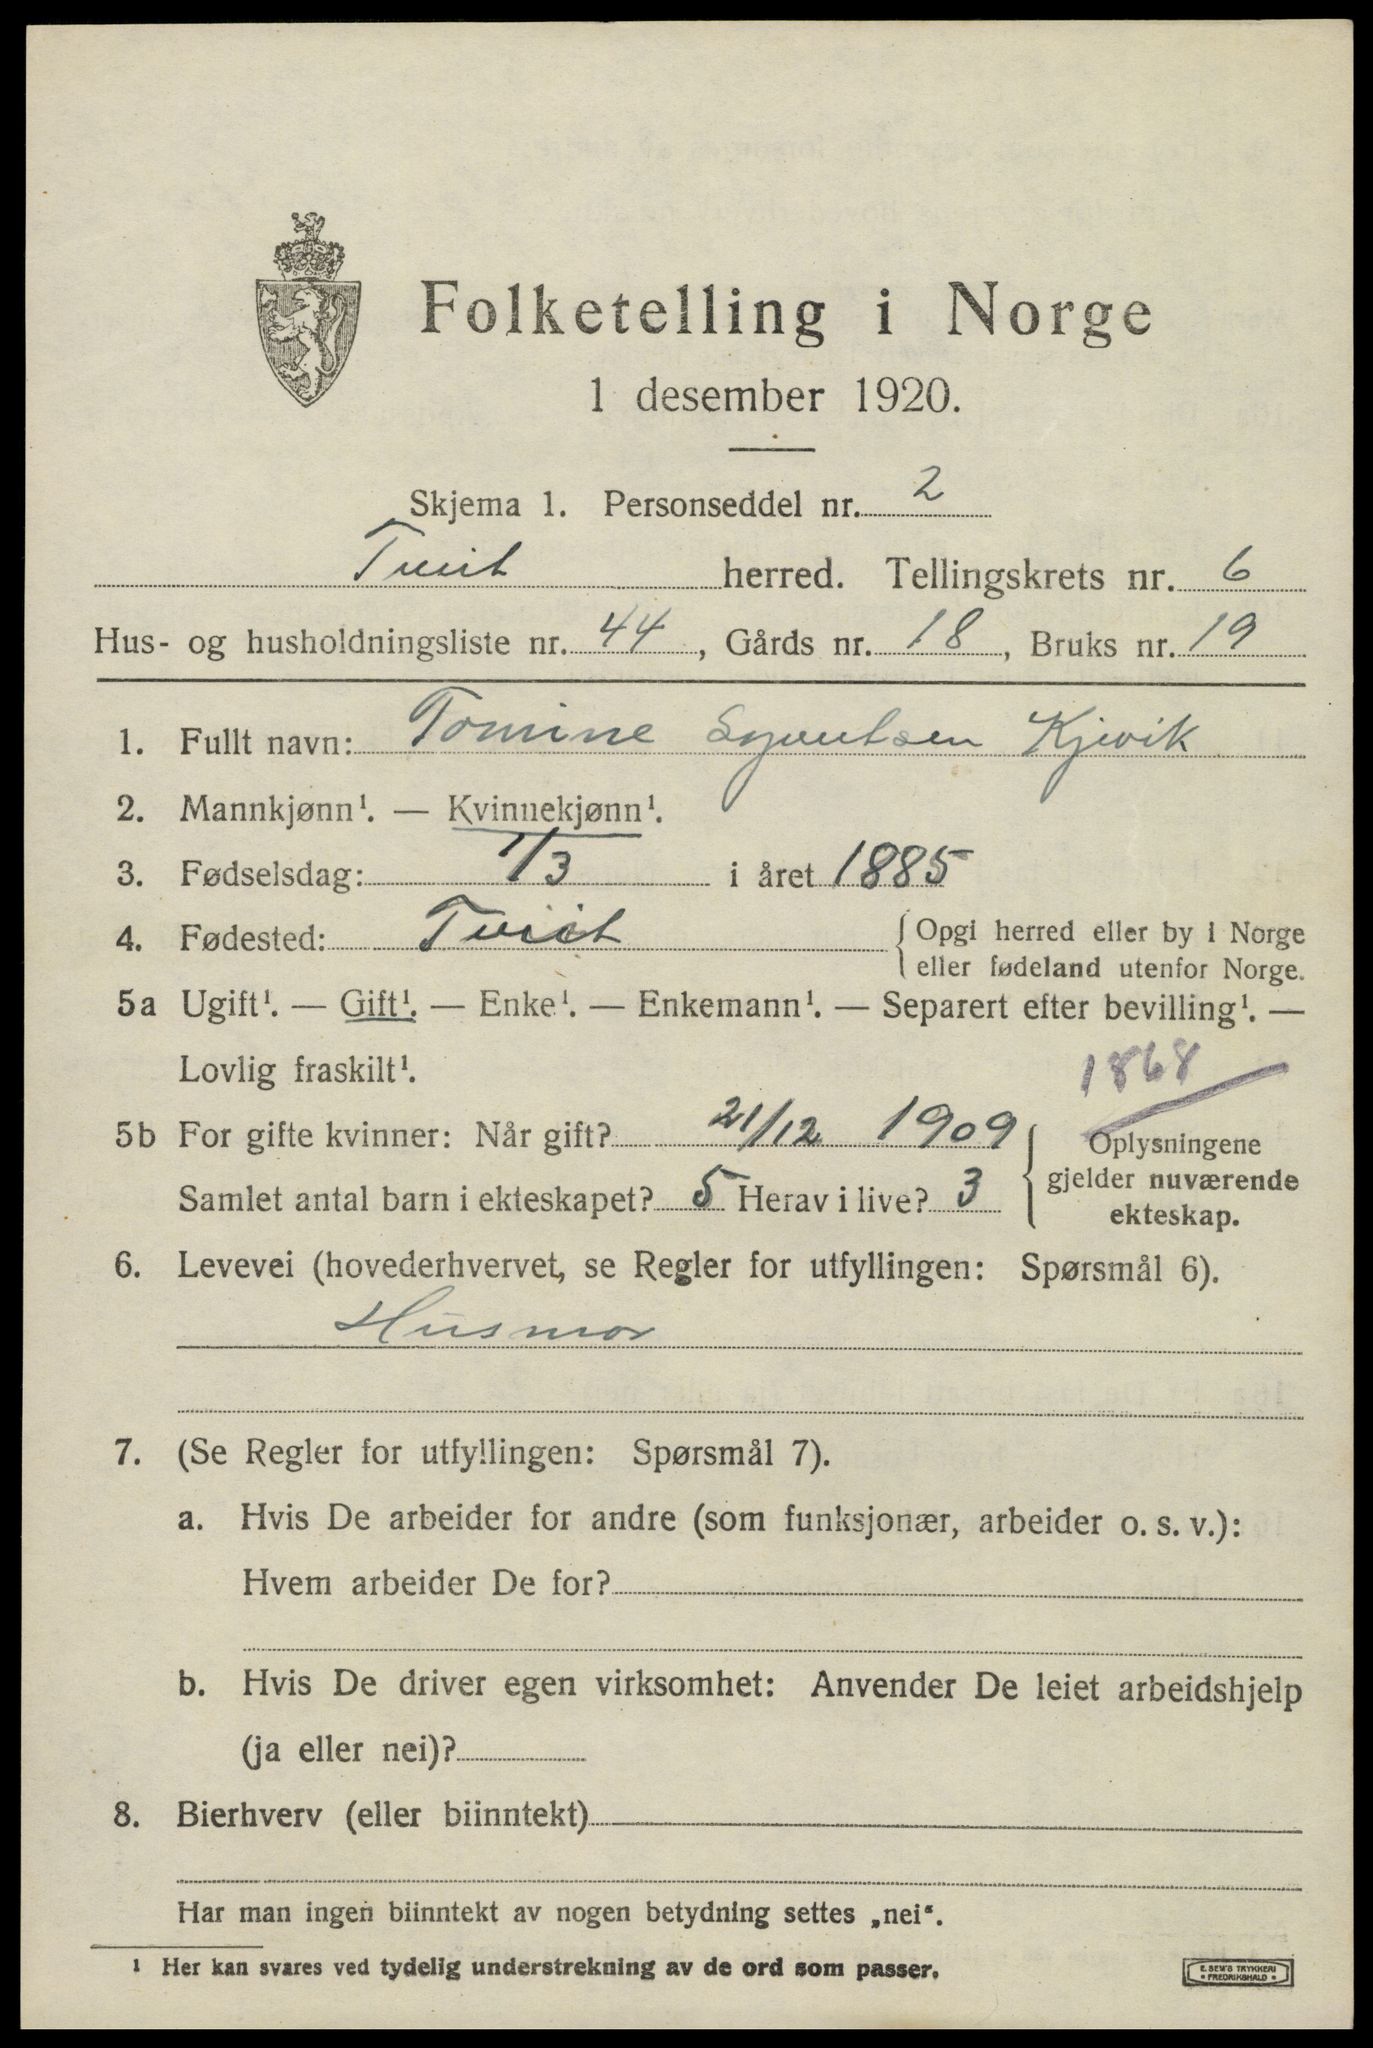 Folketelling i Norge
1 desember 1920.
Skjema 1. Personseddel nr. 2
Tveit herred. Tellingskrets nr. 6
Hus- og husholdningsliste nr. 44, Gårds nr. 18, Bruks nr. 19
1. Fullt navn: Tomine Syvertsen Kjevik
2. Mannkjønn¹. — Kvinnekjønn¹.
3. Fødselsdag: 1/3 i året 1885
4. Fødested: Tveit { Opgi herred eller by i Norge
eller fødeland utenfor Norge.
5a Ugift¹. — Gift¹. — Enke¹. — Enkemann¹. — Separert efter bevilling¹. —
Lovlig fraskilt¹.
1868
5b For gifte kvinner: Når gift? 21/12 1909 { Oplysningene
gjelder nuværende
ekteskap.
Samlet antal barn i ekteskapet? 5 Herav i live? 3
6. Levevei (hovederhvervet, se Regler for utfyllingen: Spørsmål 6).
Husmor
7. (Se Regler for utfyllingen: Spørsmål 7).
a. Hvis De arbeider for andre (som funksjonær, arbeider o. s. v.):
Hvem arbeider De for?
b. Hvis De driver egen virksomhet: Anvender De leiet arbeidshjelp
(ja eller nei)?
8. Bierhverv (eller biinntekt)
Har man ingen biinntekt av nogen betydning settes „nei“.
¹ Her kan svares ved tydelig understrekning av de ord som passer.
E. SEM'S TRYKKERI
• FREDRIKSHALD •